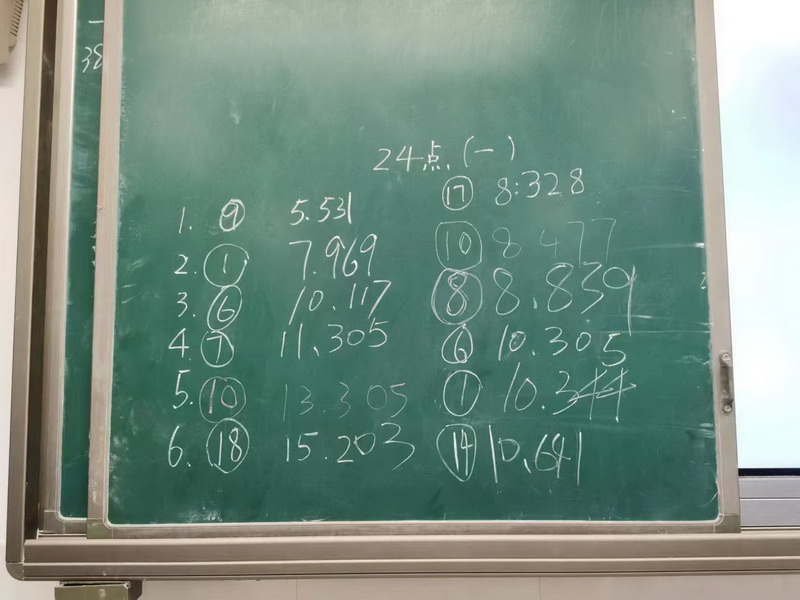 24点(一)
⑰ 8:328
1. ⑨ 5.531
⑩ 8.477
2. ① 7.969
⑧ 8.839
3. ⑥ 10.117
4. ⑦ 11.305
⑥ 10.305
5. ⑩ 13.305
① 10.344
6. ⑱ 15.203
⑭ 10.641